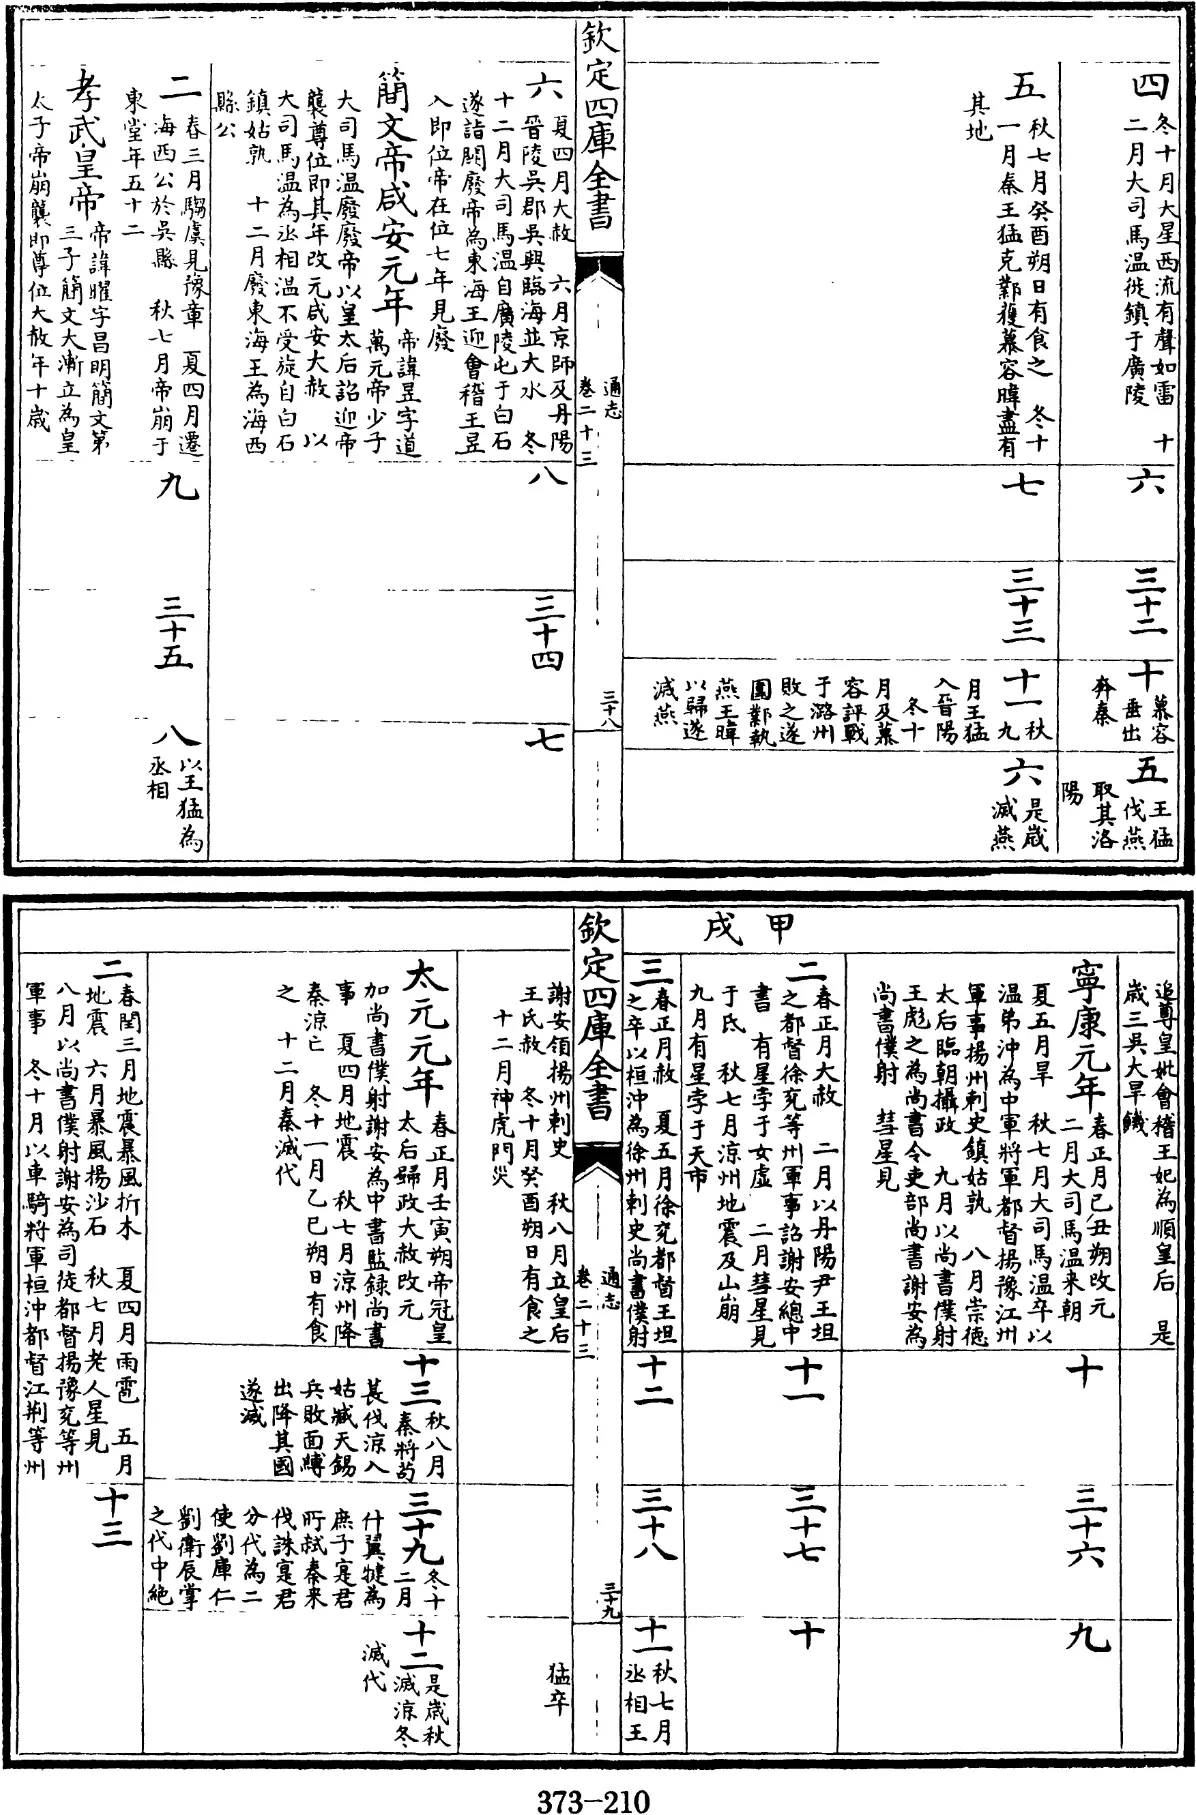 四
冬十月大星西流有聲如雷　十
二月大司馬溫徙鎮于廣陵
六
三十二
十
慕容
垂出
奔秦
五
王猛
伐燕
取其洛
陽
五
秋七月癸酉朔日有食之　冬十
一月秦王猛克鄴獲慕容暐盡有
其地
七
三十三
十一
秋
九
月王猛
入晉陽
冬十
月及慕
容評戰
于潞州
敗之遂
圍鄴執
燕王暐
以歸遂
滅燕
六
是歲
滅燕
欽定四庫全書
通志
卷二十三
三十八
六
夏四月大赦　六月京師及丹陽
晉陵吳郡吳興臨海並大水　冬
十二月大司馬溫自廣陵屯于白石
遂詣闕廢帝為東海王迎會稽王昱
入即位帝在位七年見廢
簡文帝咸安元年
帝諱昱字道
萬元帝少子
大司馬溫廢廢帝以皇太后詔迎帝
襲尊位即其年改元咸安大赦　以
大司馬溫為丞相溫不受旋自白石
鎮姑孰　十二月廢東海王為海西
縣公
八
三十四
七
二
春三月騶虞見豫章　夏四月遷
海西公於吳縣　秋七月帝崩于
東堂年五十二
孝武皇帝
帝諱曜字昌明簡文第
三子簡文大漸立為皇
太子帝崩襲即尊位大赦年十歲
九
三十五
八
以王猛為
丞相
追尊皇妣會稽王妃為順皇后　是
歲三吳大旱饑
甲戌
寧康元年
春正月己丑朔改元
二月大司馬溫来朝
夏五月旱　秋七月大司馬溫卒以
溫弟沖為中軍將軍都督揚豫江州
軍事揚州刺史鎮姑孰　八月崇德
太后臨朝攝政　九月以尚書僕射
王彪之為尚書令吏部尚書謝安為
尚書僕射　彗星見
十
三十六
九
二
春正月大赦　二月以丹陽尹王坦
之都督徐兗等州軍事詔謝安總中
書　有星孛于女虛　二月彗星見
于氐　秋七月涼州地震及山崩
九月有星孛于天市
十一
三十七
十
三
春正月赦　夏五月徐兗都督王坦
之卒以桓沖為徐州刺史尚書僕射
十二
三十八
十一
秋七月
丞相王
欽定四庫全書
通志
卷二十三
三十九
謝安領揚州刺史　秋八月立皇后
王氏赦　冬十月癸酉朔日有食之
十二月神虎門災
猛卒
太元元年
春正月壬寅朔帝冠皇
太后歸政大赦改元
加尚書僕射謝安為中書監録尚書
事　夏四月地震　秋七月涼州降
秦涼亡　冬十一月乙巳朔日有食
之　十二月秦滅代
十三
秋八月
秦將苟
萇伐涼入
姑臧天錫
兵敗面縛
出降其國
遂滅
三十九
冬十
二月
什翼犍為
庶子寔君
所弑秦来
伐誅寔君
分代為二
使劉庫仁
劉衛辰掌
之代中絶
十二
是歲秋
滅涼冬
滅代
二
春閏三月地震暴風折木　夏四月雨雹　五月
地震　六月暴風揚沙石　秋七月老人星見
八月以尚書僕射謝安為司徒都督揚豫兗等州
軍事　冬十月以車騎將軍桓沖都督江荆等州
十三
373-210